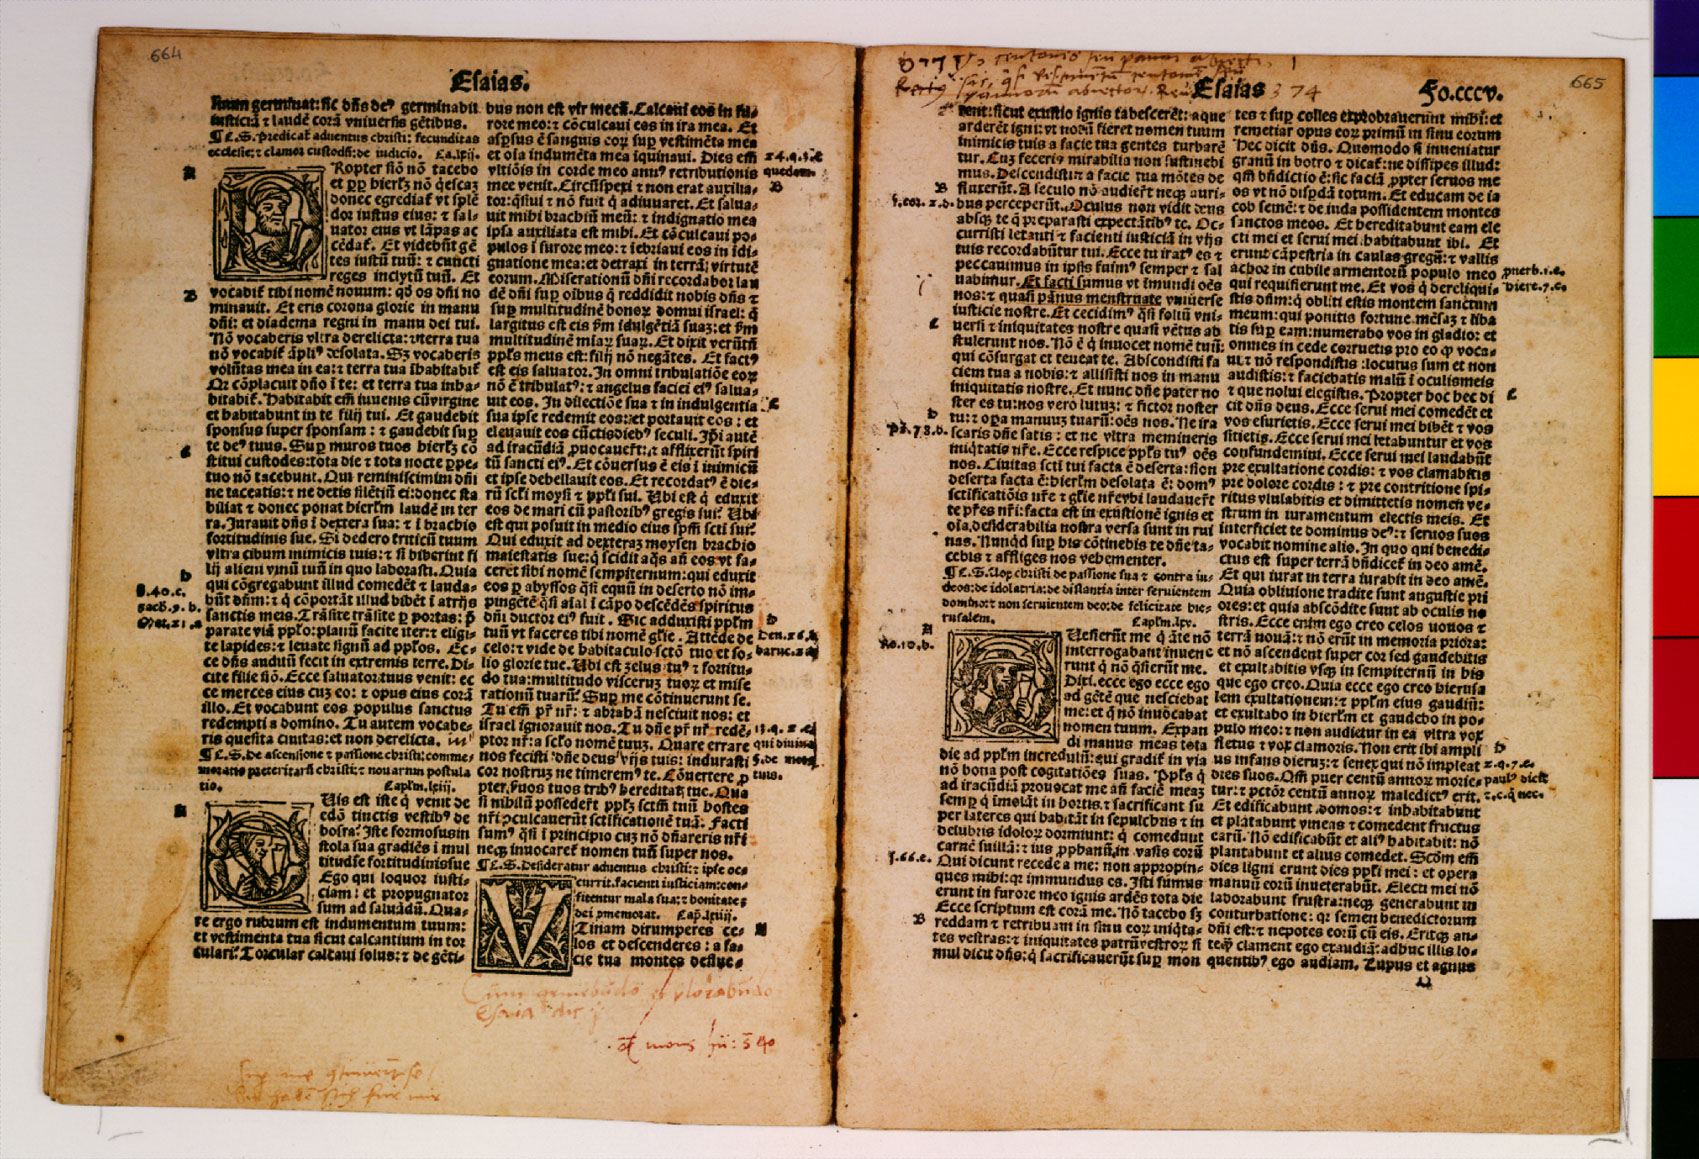 664
Esaias.
suum germinat: sic dñs de⁹ germinabit
iusticiã ⁊ laudẽ corã vniuersis gẽtibus.
¶ C.S. Predicat aduentus christi: fecunditas
ecclesie: ⁊ clamor custodũ: de iudicio. Ca.lxij.
A
PRopter siõ nõ tacebo
et ꝓp hierłʒ nõ q̃escaʒ
donec egrediat̃ vt splẽ
dor iustus eius: ⁊ sal-
uator eius vt lãpas ac
cẽdat̃. Et videbũt gẽ
tes iustũ tuũ: ⁊ cuncti
reges inclytũ tuũ. Et
B
vocabit̃ tibi nomẽ nouum: qd̃ os dñi no
minauit. Et eris corona glorie in manu
dñi: et diadema regni in manu dei tui.
Nõ vocaberis vltra derelicta: ⁊ terra tua
nõ vocabit̃ ãpli⁹ desolata. Sʒ vocaberis
volũtas mea in ea: ⁊ terra tua ĩhabitabit̃
Qr cõplacuit dño ĩ te: et terra tua inha-
bitabit̃. Habitabit em̃ iuuenis cũ virgine
et habitabunt in te filij tui. Et gaudebit
sponsus super sponsam: ⁊ gaudebit sup̱
te de⁹ tuus. Sup̱ muros tuos hierłʒ cõ
C
stitui custodes: tota die ⁊ tota nocte ꝑpe-
tuo nõ tacebunt. Qui reminiscimini dñi
ne taceatis: ⁊ ne detis silẽtiũ ei: donec sta
biliat ⁊ donec ponat hierłm laudẽ in ter
ra. Jurauit dñs ĩ dextera sua: ⁊ ĩ brachio
fortitudinis sue. Si dedero triticũ tuum
vltra cibum inimicis tuis: ⁊ si biberint fi
lij alieni vinũ tuũ in quo laborasti. Quia
D
qui cõgregabunt illud comedẽt ⁊ lauda-
bũt dñm: ⁊ q̃ cõportãt illud bibẽt ĩ atrijs
sanctis meis. Trãsite trãsite ꝑ portas: p̃
parate viã pp̃lo: planũ facite iter: ⁊ eligi-
te lapides: ⁊ leuate signũ ad pp̃los. Ec-
ce dñs auditũ fecit in extremis terre. Di-
cite filie siõ. Ecce saluator tuus venit: ec
ce merces eius cuʒ eo: ⁊ opus eius corã
illo. Et vocabunt eos populus sanctus
redempti a domino. Tu autem vocabe-
ris quesita ciuitas: et non derelicta.
¶ C.S. De ascensione ⁊ passione christi: comme-
moratio preteritarũ christi: ⁊ nouarum postula
tio. Capłm.lxiij.
A
QUis est iste q̃ venit de
edõ tinctis vestib⁹ de
bosra? Iste formosus in
stola sua gradiẽs ĩ mul
titudĩe fortitudinis sue
Ego qui loquor iusti-
ciam: et propugnator
sum ad saluãdũ. Qua-
re ergo rubrum est indumentum tuum:
et vestimenta tua sicut calcantium in tor
culari? Torcular calcaui solus: ⁊ de gẽti-
bus non est vir mecũ. Calcaui eos in fu-
rore meo: ⁊ cõculcaui eos in ira mea. Et
asp̱sus ẽ sanguis eoꝝ sup̱ vestimẽta mea
et oĩa indumẽta mea iquinaui. Dies em̃
vltiõis in corde meo ann⁹ retributionis
mee venit. Circũspexi ⁊ non erat auxilia-
tor: q̃siui ⁊ nõ fuit q̃ adiuuaret. Et salua-
uit mihi brachiũ meũ: ⁊ indignatio mea
ipsa auxiliata est mihi. Et cõculcaui po-
pulos ĩ furore meo: ⁊ ĩebriaui eos in idi-
gnatione mea: et detraxi in terrã; virtutẽ
eorum. Miserationũ dñi recordabor lau
dẽ dñi sup̱ oĩbus q̃ reddidit nobis dñs ⁊
sup̱ multitudinẽ bonoꝝ domui israel: q̃
largitus est eis ẽm ĩdulgẽtiã suaʒ: et ẽm
multitudinẽ mĩaꝝ suaꝝ. Et dixit verũtñ
pp̃ls meus est: filij nõ negãtes. Et fact⁹
est eis saluator. In omni tribulatiõe eoꝝ
nõ ẽ tribulat⁹: ⁊ angelus faciei ei⁹ salua-
uit eos. In dilectiõe sua ⁊ in indulgentia
sua ipse redemit eos: et portauit eos: et
eleuauit eos cũctis dieb⁹ seculi. Ip̃i autẽ
ad iracũdiã ꝓuocauert̃: ⁊ afflixerũt spiri
tũ sancti ei⁹. Et cõuersus ẽ eis ĩ inimicũ
et ipse debellauit eos. Et recordat⁹ ẽ die-
rũ scłi moysi ⁊ pp̃li sui. Ubi est q̃ eduxit
eos de mari cũ pastorib⁹ gregis sui? Ubi
est qui posuit in medio eius spm̃ scti sui?
Qui eduxit ad dexteraʒ moysen brachio
maiestatis sue: q̃ scidit aq̃s añ eos vt fa-
ceret sibi nomẽ sempiternum: qui eduxit
eos ꝑ abyssos q̃si equũ in deserto nõ im-
pingẽtẽ q̃si aĩal ĩ cãpo descẽdẽs spiritus
dñi ductor ei⁹ fuit. Sic adduxisti pp̃łm
tuũ vt faceres tibi nomẽ głie. Attẽde de
celo: ⁊ vide de habitaculo sctõ tuo et so-
lio glorie tue. Ubi est zelus tu⁹ ⁊ fortitu-
do tua: multitudo visceruʒ tuoꝝ et mise
rationũ tuarũ? Sup̱ me cõtinuerunt se.
Tu em̃ pr̃ nr̃: ⁊ abrahã nesciuit nos: et
israel ignorauit nos. Tu dñe pr̃ nr̃ redẽ-
ptor nr̃: a scło nomẽ tuuʒ. Quare errare
nos fecisti dñe deus vijs tuis: indurasti
cor nostruʒ ne timerem⁹ te. Cõuertere ꝓ
pter ẜuos tuos trib⁹ hereditat̃ tue. Qua
si nihilũ possedert̃ pp̃lʒ sctm̃ tuũ hostes
nr̃i ꝯculcauerũt sctificationẽ tuã. Facti
sum⁹ q̃si ĩ principio cuʒ nõ dñareris nr̃i
neqʒ inuocaret̃ nomen tuũ super nos.
¶ C.S. Desideratur aduentus christi: ⁊ ipse oc-
currit facienti iusticiam: con-
fitentur mala sua: ⁊ bonitatẽ
dei ꝓmemorat. Cap̃.lxiiij.
VTinam dirumperes ce-
los et descenderes: a fa-
cie tua montes deflue-
A
24.q.3.c
quedam.
B
C
D
Deu.26.d
baruc.2.d
13.q.2.c.
qui diuina
§.de mog
tuis.
8.40.c.
zach.9.b.
Mat.21.a
665
Esaias
374
Fo.cccv.
rent: sicut exustio ignis tabescerẽt: aque
arderẽt igni: vt notũ fieret nomen tuum
inimicis tuis a facie tua gentes turbarẽ
tur. Cuʒ feceris mirabilia non sustinebi
mus. Descendisti ⁊ a facie tua mõtes de
B
fluxerũt. A seculo nõ audiert̃ neqʒ auri-
1.cor.2.b.
bus perceperũt. Oculus non vidit deus
absqʒ te q̃ preparasti expectãtib⁹ te. Oc-
curristi letanti ⁊ facienti iusticiã in vijs
tuis recordabũtur tui. Ecce tu irat⁹ es ⁊
peccauimus in ipsis fuim⁹ semper ⁊ sal
uabimur. Et facti sumus vt ĩmundi oẽs
nos: ⁊ quasi pãnus menstruate vniuerse
iusticie nostre. Et cecidim⁹ q̃si foliũ vni-
C
uersi ⁊ iniquitates nostre quasi vẽtus ab
stulerunt nos. Nõ ẽ q̃ inuocet nomẽ tuũ:
qui cõsurgat et teneat te. Abscondisti fa
ciem tua a nobis: ⁊ allisisti nos in manu
iniquitatis nostre. Et nunc dñe pater no
ster es tu: nos vero lutuʒ: ⁊ fictor noster
D
tu: ⁊ oꝑa manuuʒ tuarũ: oẽs nos. Ne ira
ps.78.b.
scaris dñe satis: et ne vltra memineris
iniq̃tatis nr̃e. Ecce respice pp̃ls tu⁹ oẽs
nos. Ciuitas scti tui facta ẽ deserta: sion
deserta facta ẽ: hierłm desolata ẽ: dom⁹
sctificatiõis nr̃e ⁊ głie nr̃e vbi laudauert̃
te pr̃es nr̃i: facta est in exustionẽ ignis et
oĩa desiderabilia nostra versa sunt in rui
nas. Nunqd̃ sup̱ his cõtinebis te dñe ta-
cebis ⁊ affliges nos vehementer.
¶ C.S. Uox christi de passione sua ⁊ contra iu-
deos: de idolatria: de distantia inter seruientem
domino ⁊ non seruientem deo: de felicitate hie-
rusalem. Capłm.lxv.
A
Ro.10.b.
QUesierũt me q̃ ãte nõ
interrogabant inuene
runt q̃ nõ q̃sierũt me.
Dixi. ecce ego ecce ego
ad gẽtẽ que nesciebat
me: et q̃ nõ inuocabat
nomen tuum. Expan
di manus meas tota
die ad pp̃łm incredulũ: qui gradit̃ in via
nõ bona post cogitatiões suas. Pp̃ls q̃
ad iracũdiã prouocat me añ faciẽ meaʒ
semp̱ q̃ ĩmolãt in hortis. ⁊ sacrificant su
per lateres qui habitãt in sepulchris ⁊ in
delubris idoloꝝ dormiunt: q̃ comedunt
carnẽ suillã: ⁊ ius ꝓphanũ in vasis eorũ
s.66.e.
Qui dicunt recede a me: non appropin-
ques mihi: qr immundus es. Isti fumus
erunt in furore meo ignis ardẽs tota die
Ecce scriptum est corã me. Nõ tacebo sʒ
B
reddam ⁊ retribuam in sinu eoꝝ iniq̃ta-
tes vestras: ⁊ iniquitates patrũ vestroꝝ si
mul dicit dñs: q̃ sacrificauerũt sup̱ mon
tes ⁊ sup̱ colles exprobrauerunt mihi: et
remetiar opus eoꝝ primũ in sinu eorum
Hec dicit dñs. Quomodo si inueniatur
granũ in botro ⁊ dicat̃: ne dissipes illud:
qm̃ bñdictio ẽ: sic faciã ꝓpter seruos me
os vt nõ disp̱dã totum. Et educam de ia
cob semẽ: ⁊ de iuda possidentem montes
sanctos meos. Et hereditabunt eam ele
cti mei et serui mei habitabunt ibi. Et
erunt cãpestria in caulas gregũ: ⁊ vallis
achor in cubile armentorũ populo meo
qui requisierunt me. Et vos q̃ dereliqui-
stis dñm: q̃ obliti estis montem sanctum
meum: qui ponitis fortune mẽsaʒ ⁊ liba
tis sup̱ eam: numerabo vos in gladio: et
omnes in cede corruetis pro eo ꝙ voca-
ui: ⁊ nõ respondistis: locutus sum et non
audistis: ⁊ faciebatis malũ ĩ oculis meis
⁊ que nolui elegistis. Propter hoc hec di
C
cit dñs deus. Ecce serui mei comedẽt et
vos esurietis. Ecce serui mei bibẽt ⁊ vos
sitietis. Ecce serui mei letabuntur et vos
confundemini. Ecce serui mei laudabũt
pre exultatione cordis: ⁊ vos clamabitis
pre dolore cordis: ⁊ pre contritione spi-
ritus vlulabitis et dimittetis nomen ve-
strum in iuramentum electis meis. Et
interficiet te dominus de⁹: ⁊ seruos suos
vocabit nomine alio. In quo qui benedi-
ctus est super terrã bñdicet̃ in deo amẽ.
Et qui iurat in terra iurabit in deo amẽ.
Quia obliuione tradite sunt augustie pri
ores: et quia abscõdite sunt ab oculis no
stris. Ecce enim ego creo celos nouos ⁊
terrã nouã: ⁊ nõ erũt in memoria priora:
et nõ ascendent super cor sed gaudebitis
et exultabitis vsqʒ in sempiternũ in his
que ego creo. Quia ecce ego creo hierusa
lem exultationem: ⁊ pp̃łm eius gaudiũ:
et exultabo in hierłm et gaudebo in po-
pulo meo: ⁊ non audietur in ea vltra vox
fletus ⁊ vox clamoris. Non erit ibi ampli
D
us infans dieruʒ: ⁊ senex qui nõ impleat
dies suos. Qm̃ puer centũ annoꝝ morie-
tur: ⁊ pctõr centũ annoꝝ maledict⁹ erit.
Et edificabunt domos: ⁊ inhabitabunt
et plãtabunt vineas ⁊ comedent fructus
earũ. Nõ edificabũt et ali⁹ habitabit: nõ
plantabunt et alius comedet. Scđm em̃
dies ligni erunt dies pp̃li mei: et opera
manuũ eorũ inueterabũt. Electi mei nõ
laborabunt frustra: neqʒ generabunt in
conturbatione: qr semen benedictorum
dñi est: ⁊ nepotes eorũ cũ eis. Eritqʒ an-
teq̃ clament ego exaudiã: adhuc illis lo-
quentib⁹ ego audiam. Lupus et agnus
ꝓuerb.1.e.
hiere.7.c.
2.q.7.c.
paul⁹ dicit
⁊.c.q̃ nec.